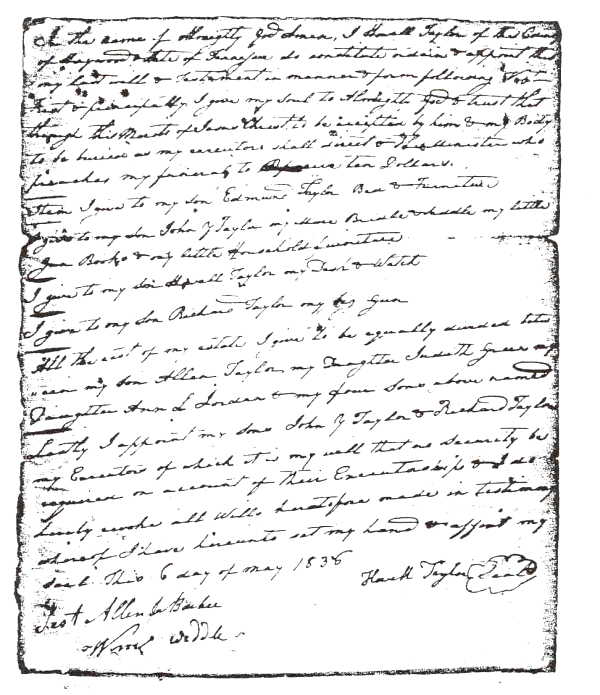 In the name of Almighty God Amen, I Howell Taylor of the County
of Haywood & State of Tennessee do constitute ordain & appoint this
my last will & Testament in manner & form following
First & principally I give my soul to Almighty God & trust that
through the Merits of Jesus Christ to be accepted by him & my Body
to be buried as my executors shall direct & the Minister who
preaches my funeral to receive ten Dollars.
Item I give to my son Edmund Taylor Bed & Furniture
I give to my son John Y Taylor my Mare Bridle & Saddle my little
Gun Books & my little Household Furniture
I give to my son Howell Taylor my Desk & Watch
I give to my Son Richard Taylor my Gun
All the rest of my estate I give to be equally divided betw
een my son Allen Taylor, my Daughter Judath Green my
Daughter Ann L Jordan & my four Sons above named
Lastly I appoint my sons John Y Taylor & Richard Taylor
my Executors of which it is my will that no security be
required on account of their Executorship & I do
hereby revoke all Wills heretofore made in testimony
whereof I have hereunto set my hand & affixt my
seal. This 6 day of May 1838
Howell Taylor Seal
Test Allen J Barbee
Weddle